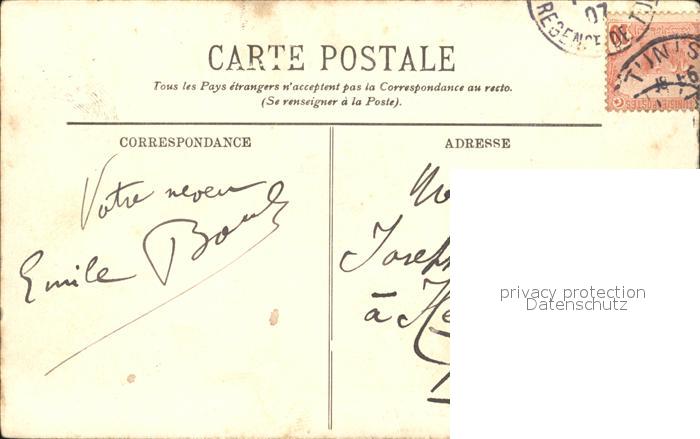 07
REGENCE DE
TUNIS
CARTE POSTALE
Tous les Pays étrangers n'acceptent pas la Correspondance au recto.
(Se renseigner à la Poste).
CORRESPONDANCE
ADRESSE
Votre neveu
Emile
Joseph
à
privacy protection
Datenschutz